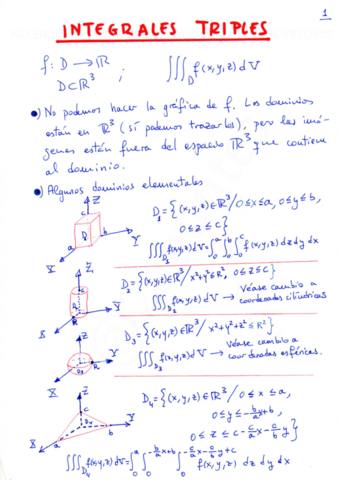 1
INTEGRALES TRIPLES
f: D → ℝ ; ∭_D f(x,y,z) dV
D⊂ℝ³
•) No podemos hacer la gráfica de f. Los dominios
están en ℝ³ (sí podemos trazarlos), pero las imá-
genes están fuera del espacio ℝ³ que contiene
al dominio.
•) Algunos dominios elementales
Z
c
D₁
b
a
Y
X
D₁={(x,y,z)∈ℝ³/0≤x≤a, 0≤y≤b,
0≤z≤c}
∭_D₁ f(x,y,z)dV=∫₀^a∫₀^b∫₀^c f(x,y,z) dz dy dx
Z
c
R
Y
X
D₂={(x,y,z)∈ℝ³/x²+y²≤R², 0≤z≤c}
∭_D₂ f(x,y,z)dV → Véase cambio a
coordenadas cilíndricas
Z
R
R
Y
X
D₃={(x,y,z)∈ℝ³/x²+y²+z²≤R²}
∭_D₃ f(x,y,z)dV → Véase cambio a
coordenadas esféricas.
Z
c
D₄
a
b
Y
X
D₄={(x,y,z)∈ℝ³/0≤x≤a,
0≤y≤-b/a x+b,
0≤z≤c-c/a x-c/b y}
∭_D₄ f(x,y,z)dV=∫₀^a∫₀^(-b/a x+b)∫₀^(-c/a x-c/b y+c) f(x,y,z) dz dy dx